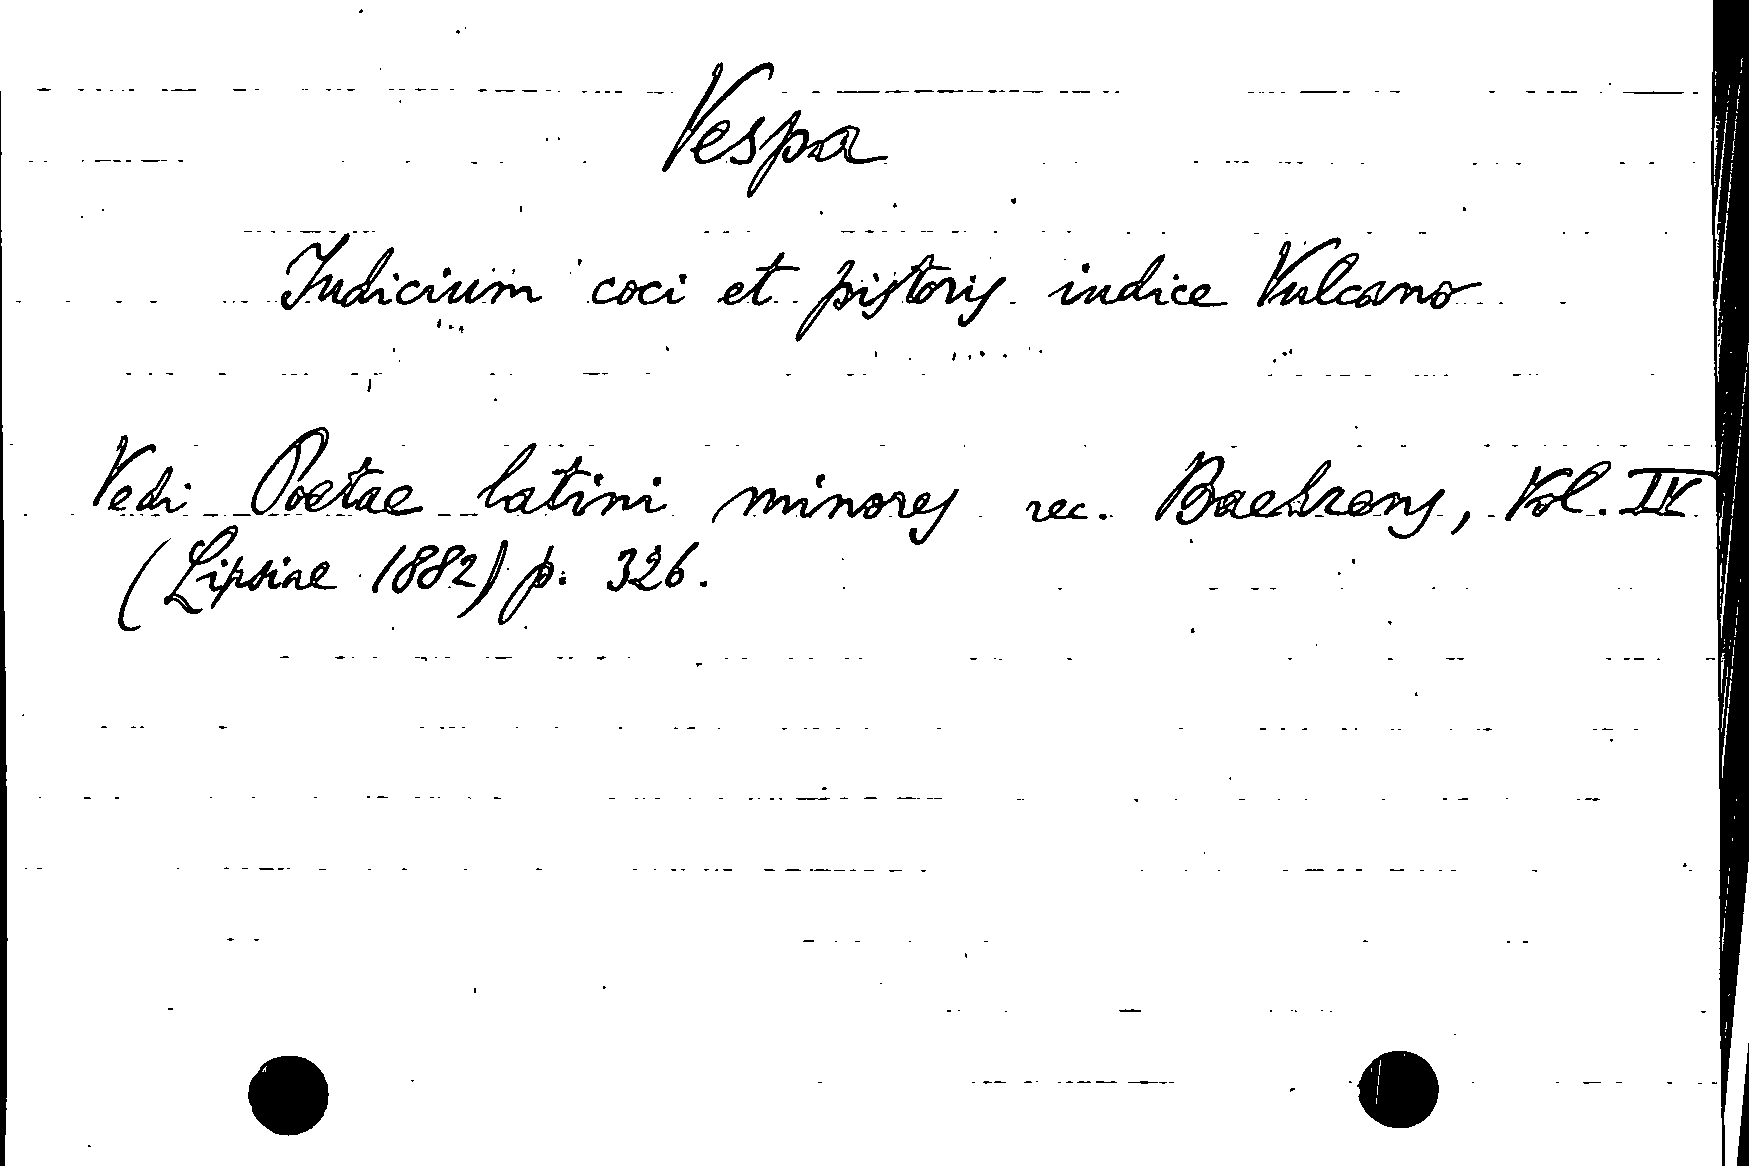 Vespa
Iudicium coci et pistoris iudice Vulcano
Vedi Poetae latini minores rec. Baehrens, Vol. IV
(Lipsiae 1882) p. 326.